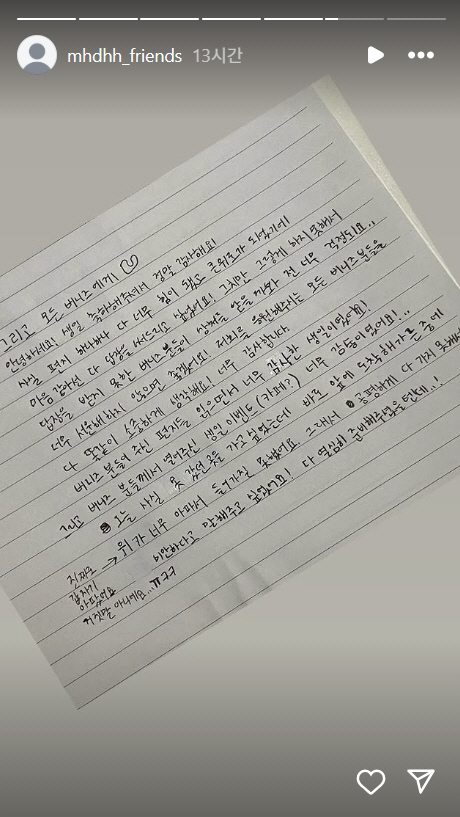 mhdhh_friends 13시간
그리고 모든 버니즈에게 ♡
안녕하세요! 생일 축하해주셔서 정말 감사해요!
사실 편지 하나하나 다 너무 힘이 됐고 큰위로가 되었기에
마음 같아선 다 답장을 써드리고 싶었어요! 그치만 그렇게 하지 못해서
답장을 받지 못한 버니즈분들이 상처를 받을 까봐 전 너무 걱정돼요..
너무 서운해하지 않으면 좋겠어요! 저희를 응원해주시는 모든 버니즈분들을
다 똑같이 소중하게 생각해요! 너무 감사합니다.
버니즈 분들이 주신 편지들 읽으면서 너무 감사한 생일이었어요!
그리고 버니즈 분들께서 열어주신 생일 이벤트(카페?) 너무 감동이었어요!..
오늘 사실 못 갔던 곳을 가고 싶었는데 바로 앞에 도착해가는 중에
→ 위가 너무 아파서 들어가질 못했어요. 그래서 공평하게 다 가지 못해서
미안하다고 말해주고 싶었어요! 다 열심히 준비해주셨을텐데..!
진짜로
갑자기
아팠어요
거짓말 아니에요...ㅠㅋㅋ